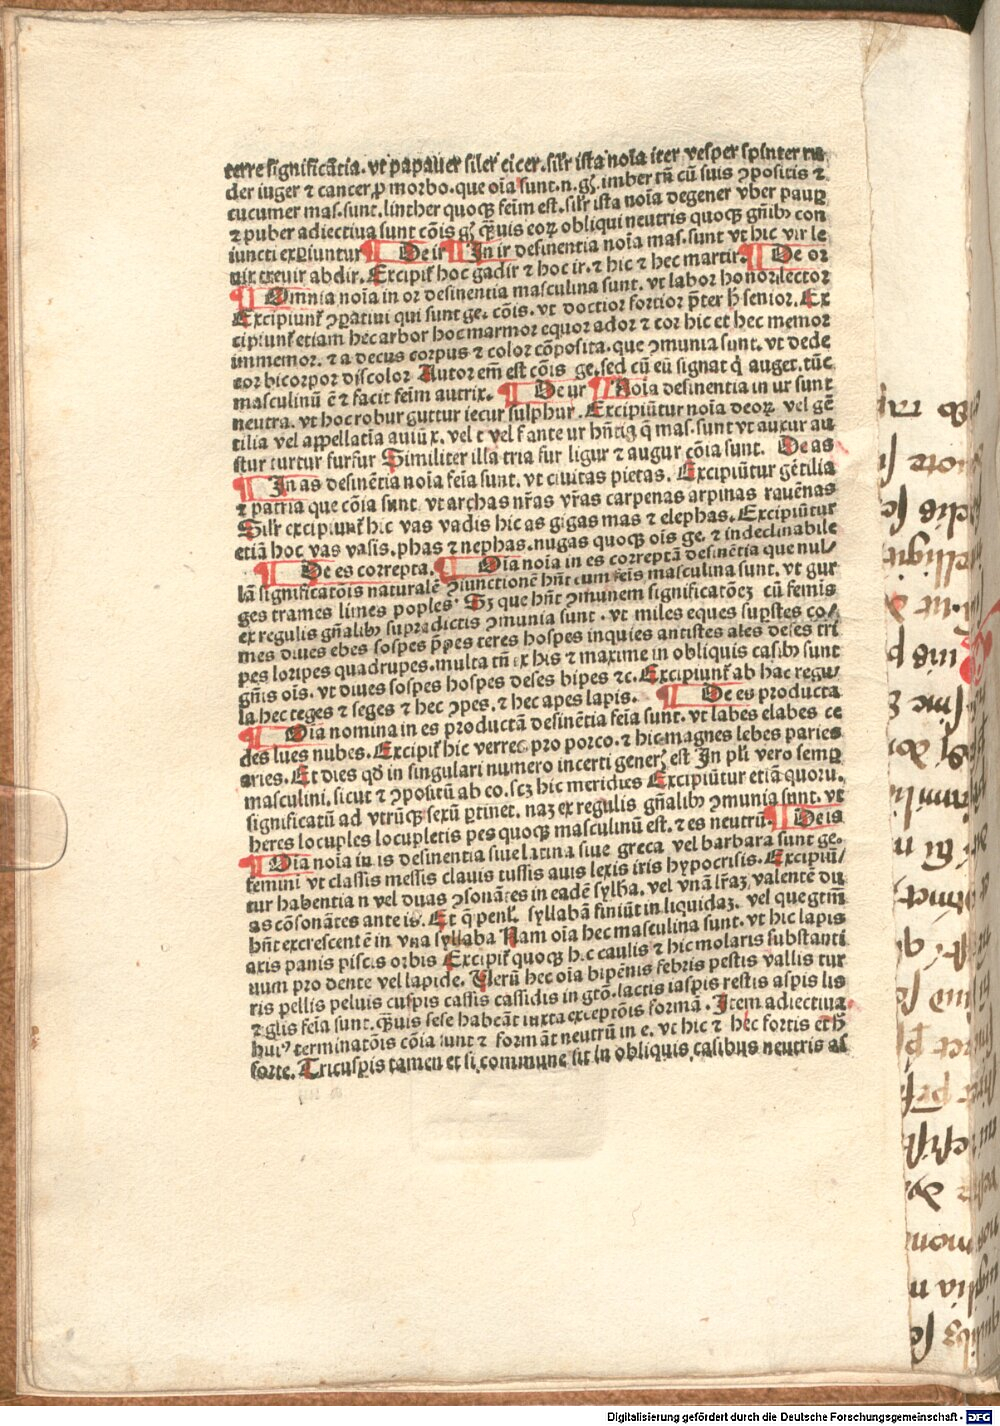 terre significātia. vt papauer siler cicer. silr ista noīa iter vesper spinter ru
der iuger ⁊ cancer ꝓ morbo. que oīa sunt. n. gͥ. imber tn̄ cū suis ꝯpositis ⁊
cucumer mas. sunt. linther quoqꝫ feīm est. silr ista noīa degener vber pauꝑ
⁊ puber adiectiua sunt cōis gͥ q̄uis eoꝝ obliqui neutris quoqꝫ gn̄ibꝫ con
iuncti exꝑiuntur ¶ De ir ¶ In ir desinentia noīa mas. sunt vt hic vir le
uir treuir abdir. Excipit᷑ hoc gadir ⁊ hoc ir. ⁊ hic ⁊ hec martir. ¶ De or
¶ Omnia noīa in or desinentia masculina sunt. vt labor honor lector
Excipiunt᷑ ꝯꝑatiui qui sunt ge. cōis. vt doctior fortior p̄ter h̄ senior. Ex
cipiunt᷑ etiam hec arbor hoc marmor equor ador ⁊ cor hic et hec memor
immemor. ⁊ a decus corpus ⁊ color cōposita. que ꝯmunia sunt. vt dede
cor bicorpor discolor Autor em̄ est cōis ge. sed cū eū signat q̇ auget. tūc
masculinū ē ⁊ facit feīm autrix. ¶ De ur ¶ Noīa desinentia in ur sunt
neutra. vt hoc robur guttur iecur sulphur. Excipiūtur noīa deoꝝ vel gē
tilia vel appellatīa auiū x. vel t vel f ante ur hn̄tia q̄ mas. sunt vt auxur au
stur turtur furfur Similiter illa tria fur ligur ⁊ augur cōia sunt. De as
¶ In as desinētia noīa feīa sunt. vt ciuitas pietas. Excipiūtur gētilia
⁊ patria que cōia sunt. vt archas nr̄as vr̄as carpenas arpinas rauēnas
Silr excipiunt᷑ hic vas vadis hic as gigas mas ⁊ elephas. Excipiūtur
etiā hoc vas vasis. phas ⁊ nephas. nugas quoqꝫ oīs ge. ⁊ indeclinabile
¶ De es correpta. ¶ Oīa noīa in es correptā desinētia que nul-
lā significatōis naturalē ꝯiunctionē hn̄t cum feīs masculina sunt. vt gur
ges trames limes poples. Sꝫ que hn̄t ꝯmunem significatōeꝫ cū femīs
ex regulis gn̄alibꝫ supradictis ꝯmunia sunt. vt miles eques suꝑstes co/
mes diues ebes sospes p̄pes teres hospes inquies antistes ales deses tri
pes loripes quadrupes. multa tn̄ ex his ⁊ maxime in obliquis casibꝫ sunt
gn̄is oīs. vt diues sospes hospes deses bipes ⁊c. Excipiunt᷑ ab hac regu/
la hec teges ⁊ seges ⁊ hec ꝯpes. ⁊ hec apes lapis. ¶ De es producta
¶ Oīa nomina in es productā desinētia feīa sunt. vt labes elabes ce
des lues nubes. Excipit᷑ hic verres pro porco. ⁊ hic magnes lebes paries
aries. Et dies qd̄ in singulari numero incerti generꝭ est In pl̄i vero semꝑ
masculini. sicut ⁊ ꝯpositū ab eo. scꝫ hic meridies Excipiūtur etiā quoru.
significatū ad vtrūqꝫ sexū ꝑtinet. naꝫ ex regulis gn̄alibꝫ ꝯmunia sunt. vt
heres locuples locupletis pes quoqꝫ masculinū est. ⁊ es neutrū. ¶ De is
¶ Oīa noīa in is desinentia siue latina siue greca vel barbara sunt ge.
femini vt classis messis clauis tussis auis lexis iris hypocrisis. Excipiū/
tur habentia n vel duas ꝯsonātes in eadē syllꝫa. vel vnā lr̄aꝫ valentē du
as cōsonātes ante is. Et q̄ penl̄. syllabā finiūt in liquidaꝫ. vel que gtm̄
hn̄t excrescentē in vna syllaba Nam oīa hec masculina sunt. vt hic lapis
axis panis piscis orbis Excipit᷑ quoqꝫ hic caulis ⁊ hic molaris substanti
uum pro dente vel lapide. Uerū hec oīa bipēnis febris pestis vallis tur
ris pellis peluis cuspis cassis cassidis in gtō. lactis iaspis restis aspis lis
⁊ glis feīa sunt. q̄uis sese habeāt iuxta exceptōis formā. Item adiectiua
huiꝰ terminatōis cōia sunt ⁊ formāt neutrū in e. vt hic ⁊ hec fortis et h̄
forte. Tricuspis tamen et si commune sit in obliquis casibus neutris as
Digitalisierung gefördert durch die Deutsche Forschungsgemeinschaft - DFG